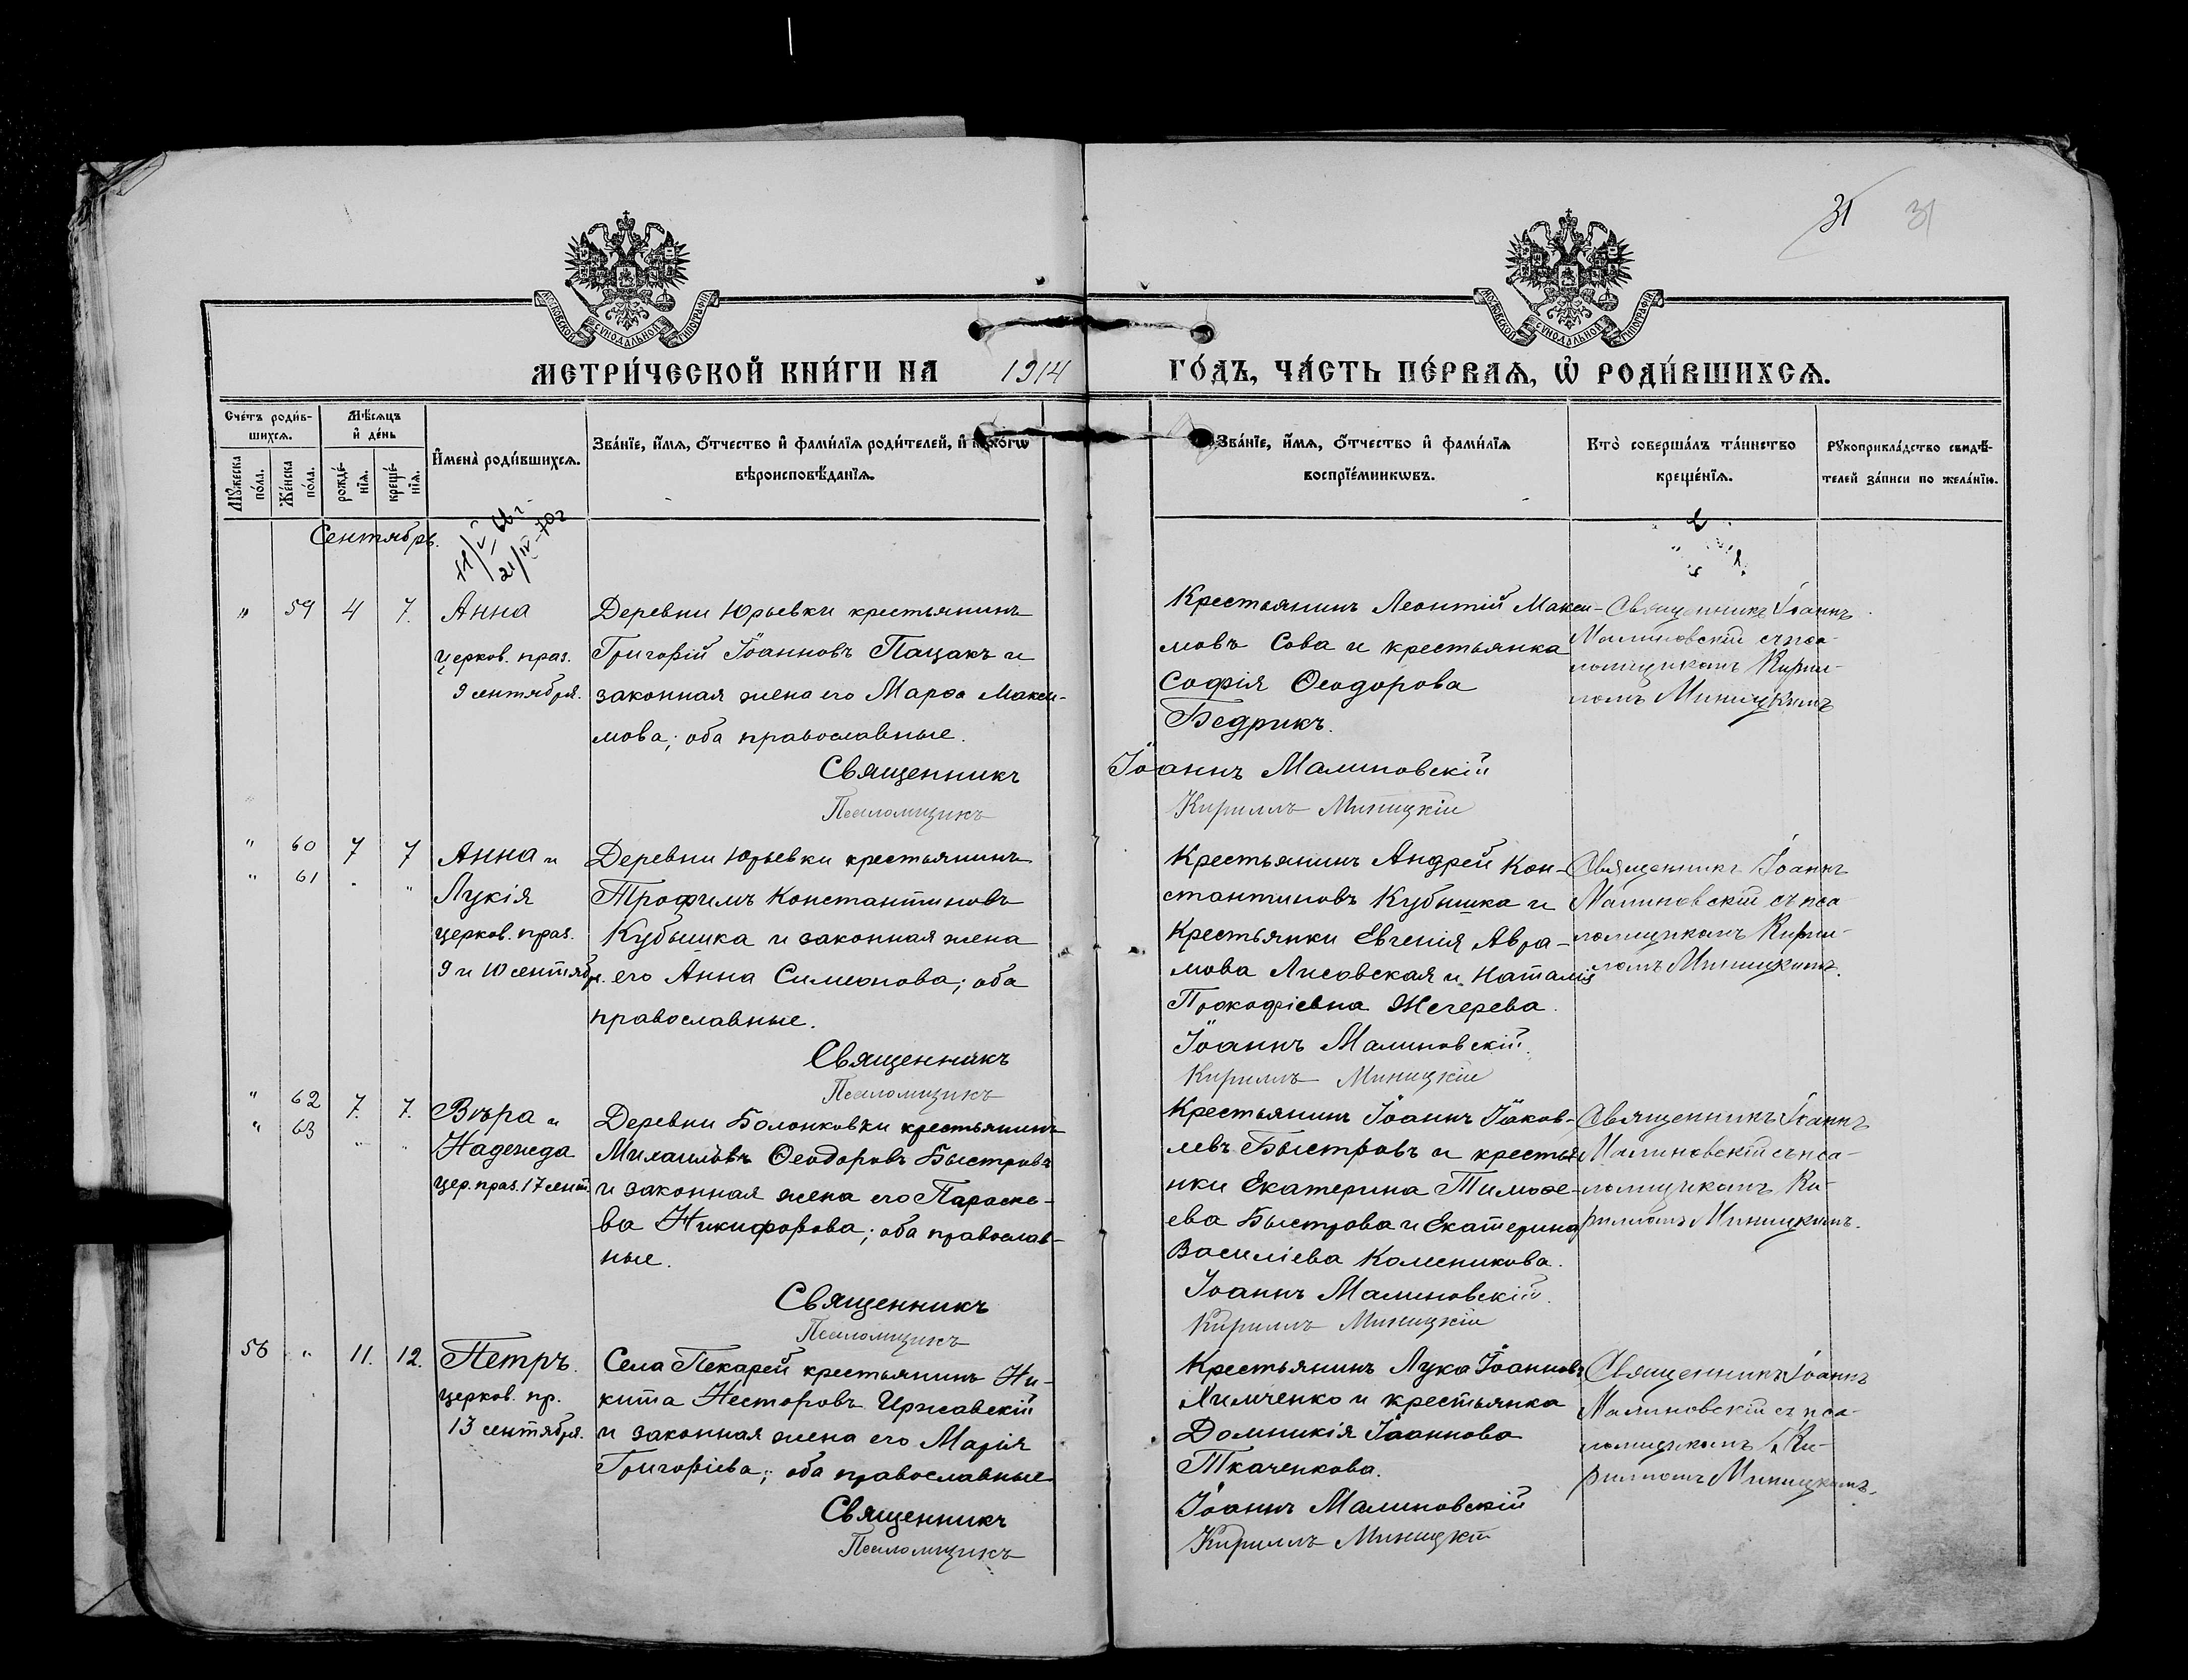 31 31
МОСКОВСКОЙ СѴНОДАЛЬНОЙ ТИПОГРАФІИ
МОСКОВСКОЙ СѴНОДАЛЬНОЙ ТИПОГРАФІИ
МЕТРИ́ЧЕСКОЙ КНИ́ГИ НА 1914 ГО́ДЪ, ЧА́СТЬ ПЕ́РВАѦ, Ѡ҆ РОДИ́ВШИХСѦ.
Сче́тъ роди́в-
шихсѧ.
Мꙋ́жеска по́ла.
Же́нска по́ла.
Мѣ́сѧцъ
и҆ де́нь
рожде́-
нїѧ.
креще́-
нїѧ.
И҆мена̀ роди́вшихсѧ.
Зва́нїе, и҆́мѧ, ѻ҆́тчество и҆ фами́лїѧ роди́телей, и҆
вѣроисповѣ́данїѧ.
Зва́нїе, и҆́мѧ, ѻ҆́тчество и҆ фами́лїѧ
воспрїе́мникѡвъ.
Кто̀ соверша́лъ та́инство
креще́нїѧ.
Рꙋкоприкла́дство свидѣ́-
телей за́писи по жела́нїю.
Сентябрь.
" 59 4 7. Анна
церков. праз.
9 сентября.
Деревни Юрьевки крестьянинъ
Григорій Іоанновъ Пацакъ и
законная жена его Марѳа Макси-
мова; оба православные.
Священникъ
Псаломщикъ
Крестьянинъ Леонтій Макси-
мовъ Сова и крестьянка
Софія Ѳеодорова
Бедрикъ.
Іоаннъ Малиновскій
Кириллъ Миницкій
Священникъ Іоаннъ
Малиновскій съ пса-
ломщикомъ Кирил-
ломъ Миницкимъ
" 60 7 7 Анна и
" 61 " " Лукія
церков. праз.
9 и 10 сентябр.
Деревни Юрьевки крестьянинъ
Трофимъ Константиновъ
Кубышка и законная жена
его Анна Симеонова; оба
православные.
Священникъ
Псаломщикъ
Крестьянинъ Андрей Кон-
стантиновъ Кубышка и
Крестьянки Евгенія Авра-
мова Лисовская и Наталія
Прокофіевна Жегерева.
Іоаннъ Малиновскій.
Кириллъ Миницкій
Священникъ Іоаннъ
Малиновскій съ пса-
ломщикомъ Кирил-
ломъ Миницкимъ.
" 62 7. 7. Вѣра и
" 63 " " Надежда
цер. праз. 17 сент.
Деревни Болонковки крестьянинъ
Михаиловъ Ѳеодоровъ Быстровъ
и законная жена его Параске-
ва Никифорова; оба православ-
ные.
Священникъ
Псаломщикъ
Крестьянинъ Іоаннъ Іаков-
левъ Быстровъ и крестья-
нки Екатерина Тимоѳе-
ева Быстрова и Екатерина
Василіева Колесникова.
Іоаннъ Малиновскій.
Кириллъ Миницкій
Священникъ Іоаннъ
Малиновскій съ пса-
ломщикомъ Ки-
рилломъ Миницкимъ.
56 " 11. 12. Петръ.
церков. пр.
13 сентября.
Села Пекарей крестьянинъ Ни-
кита Несторовъ Иржавскій
и законная жена его Марія
Григоріева; оба православные
Священникъ
Псаломщикъ
Крестьянинъ Лука Іоанновъ
Химченко и крестьянка
Домникія Іоаннова
Ткаченкова.
Іоаннъ Малиновскій
Кириллъ Миницкій
Священникъ Іоаннъ
Малиновскій съ пса-
ломщикомъ Ки-
рилломъ Миницкимъ.